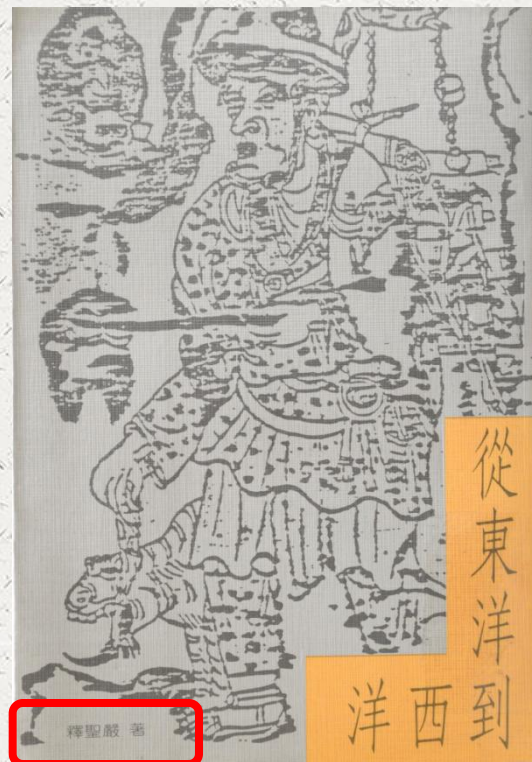 從東洋到
西洋
釋聖嚴 著